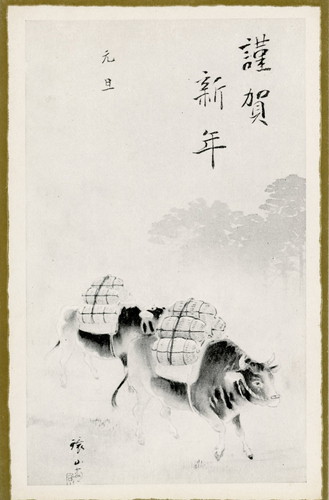 謹賀
新年
元旦